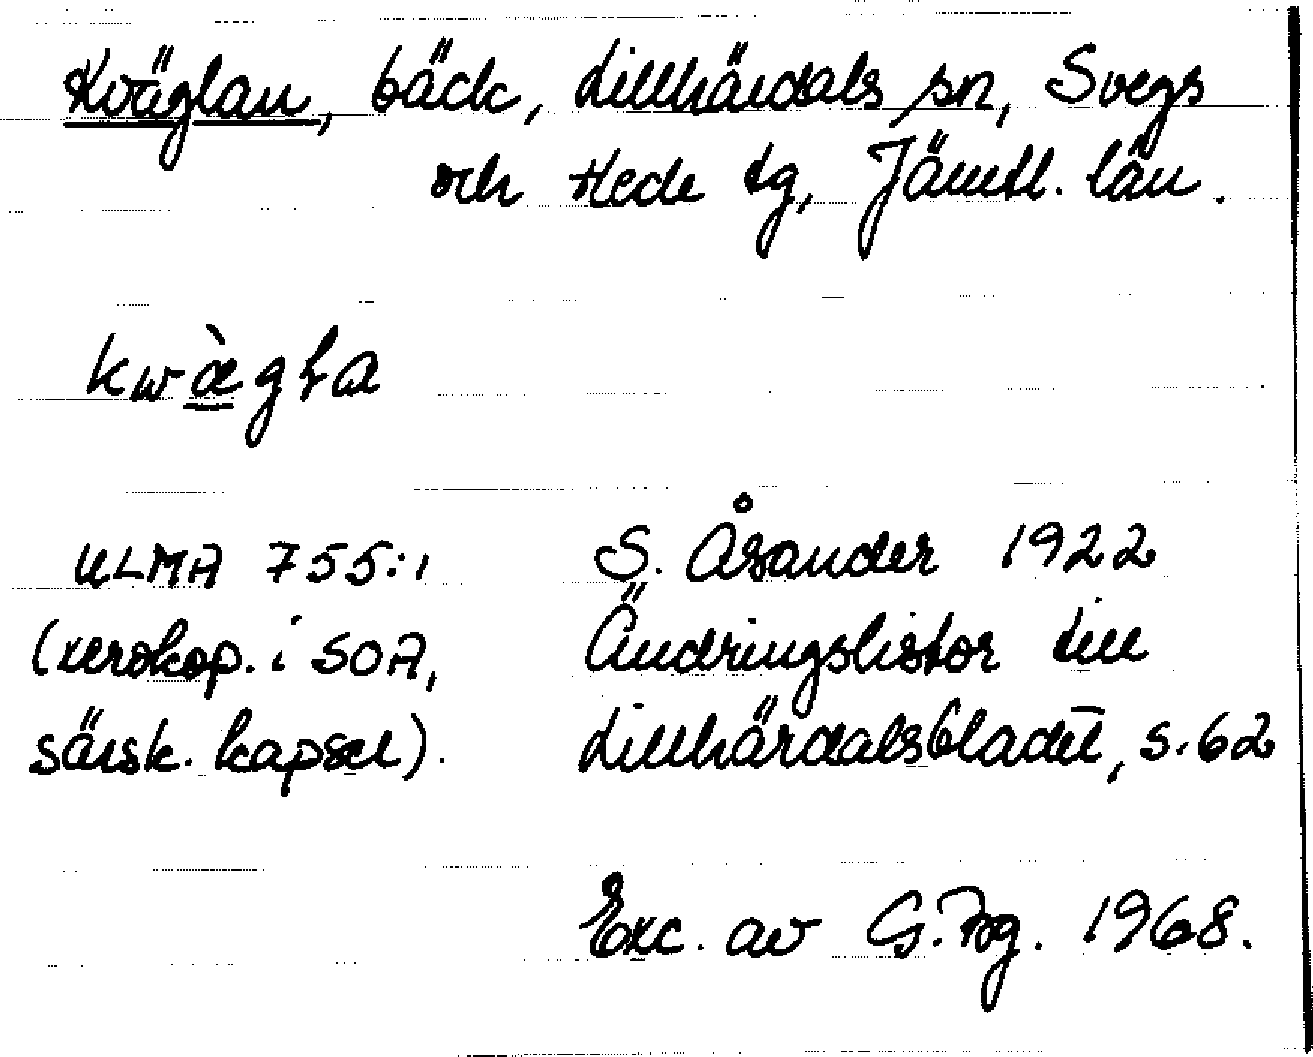 Kväglan, bäck, Lillhärdals sn, Svegs
och Hede tg, Jämtl. län.
kwæ̀gła
ULMA 755:1 S. Åsander 1922
(xerokop. i SOA, Ändringslistor till
särsk. kapsel). Lillhärdalsbladet, s. 62
Exc. av G. 1968.